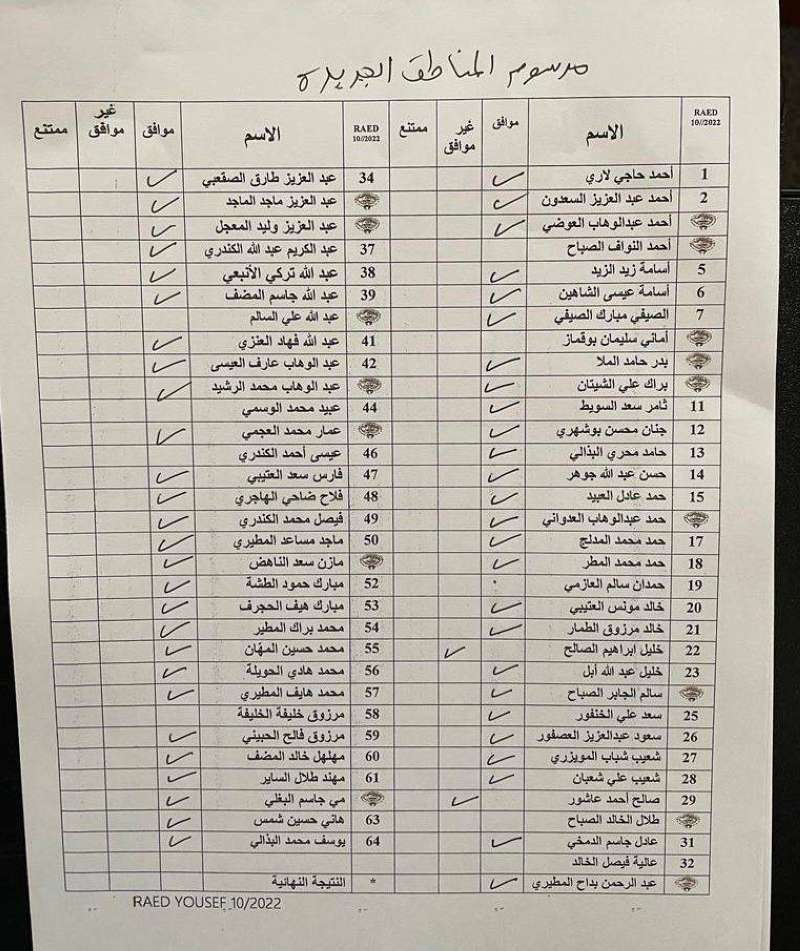 مرسوم المناطق الجديدة
RAED 10//2022 الاسم موافق غير موافق ممتنع
1 أحمد حاجي لاري ✓
2 أحمد عبد العزيز السعدون ✓
أحمد عبدالوهاب العوضي ✓
أحمد النواف الصباح
5 أسامة زيد الزيد ✓
6 أسامة عيسى الشاهين ✓
7 الصيفي مبارك الصيفي ✓
أماني سليمان بوقماز
بدر حامد الملا ✓
براك علي الشيتان ✓
11 ثامر سعد السويط ✓
12 جنان محسن بوشهري ✓
13 حامد محري البذالي ✓
14 حسن عبد الله جوهر ✓
15 حمد عادل العبيد ✓
حمد عبدالوهاب العدواني ✓
17 حمد محمد المدلج ✓
18 حمد محمد المطر ✓
19 حمدان سالم العازمي
20 خالد مونس العتيبي ✓
21 خالد مرزوق الطمار ✓
22 خليل ابراهيم الصالح ✓
23 خليل عبد الله أبل ✓
سالم الجابر الصباح ✓
25 سعد علي الخنفور ✓
26 سعود عبدالعزيز العصفور ✓
27 شعيب شباب المويزري ✓
28 شعيب علي شعبان ✓
29 صالح أحمد عاشور ✓
طلال الخالد الصباح
31 عادل جاسم الدمخي ✓
32 عالية فيصل الخالد
عبد الرحمن بداح المطيري ✓
RAED 10//2022 الاسم موافق غير موافق ممتنع
34 عبد العزيز طارق الصقعبي ✓
عبد العزيز ماجد الماجد ✓
عبد العزيز وليد المعجل ✓
37 عبد الكريم عبد الله الكندري ✓
38 عبد الله تركي الأنبعي ✓
39 عبد الله جاسم المضف ✓
عبد الله علي السالم
41 عبد الله فهاد العنزي ✓
42 عبد الوهاب عارف العيسى ✓
عبد الوهاب محمد الرشيد ✓
44 عبيد محمد الوسمي
عمار محمد العجمي ✓
46 عيسى أحمد الكندري
47 فارس سعد العتيبي ✓
48 فلاح ضاحي الهاجري ✓
49 فيصل محمد الكندري ✓
50 ماجد مساعد المطيري ✓
مازن سعد الناهض ✓
52 مبارك حمود الطشة ✓
53 مبارك هيف الحجرف ✓
54 محمد براك المطير ✓
55 محمد حسين المهّان ✓
56 محمد هادي الحويلة ✓
57 محمد هايف المطيري ✓
58 مرزوق خليفة الخليفة
59 مرزوق فالح الحبيني ✓
60 مهلهل خالد المضف ✓
61 مهند طلال الساير ✓
مي جاسم البغلي ✓
63 هاني حسين شمس ✓
64 يوسف محمد البذالي ✓
* النتيجة النهائية
RAED YOUSEF 10/2022